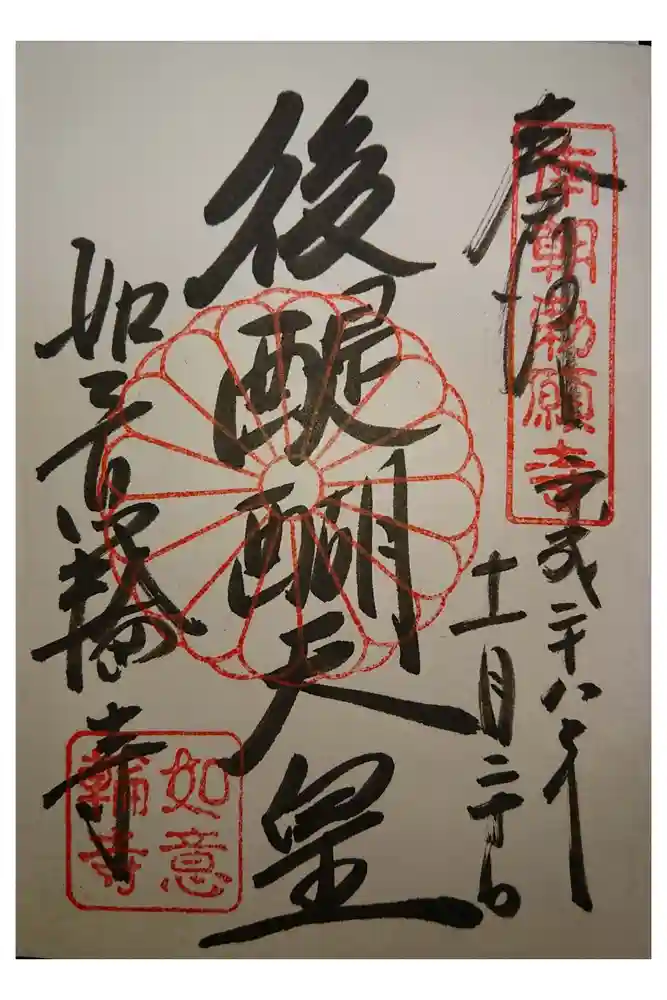 奉拝
南朝勅願寺
平成二十八年
十一月二十日
後醍醐天皇
如意輪寺
如意
輪寺